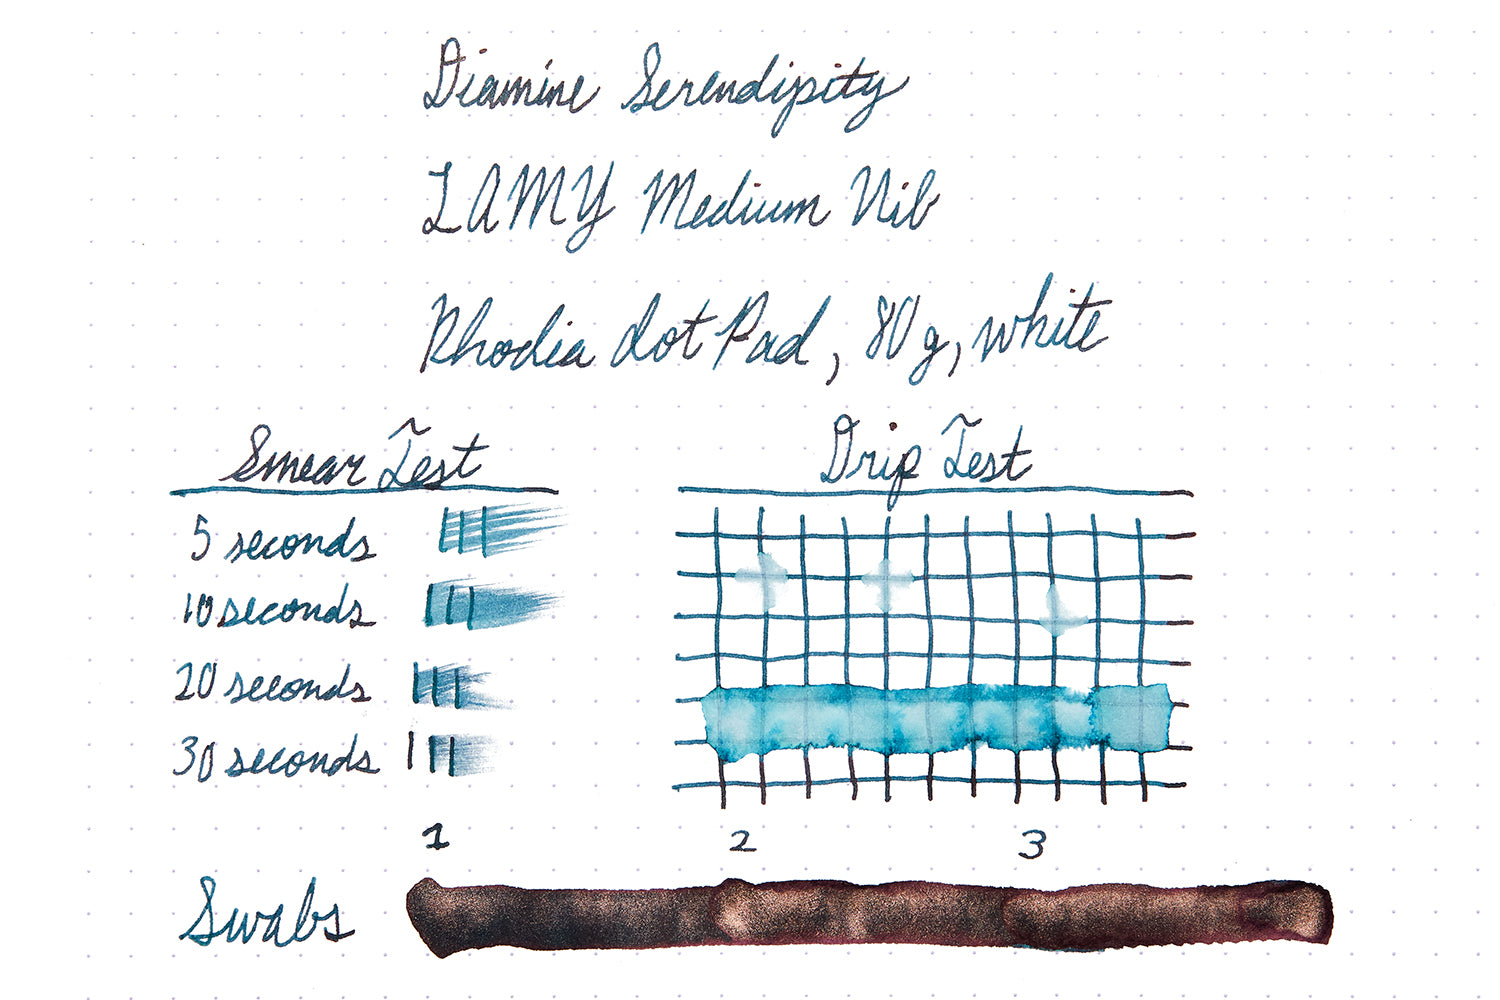 Diamine Serendipity
LAMY Medium Nib
Rhodia dot Pad, 80g, white
Smear Test
5 seconds
10 seconds
20 seconds
30 seconds
Drip Test
1 2 3
Swabs